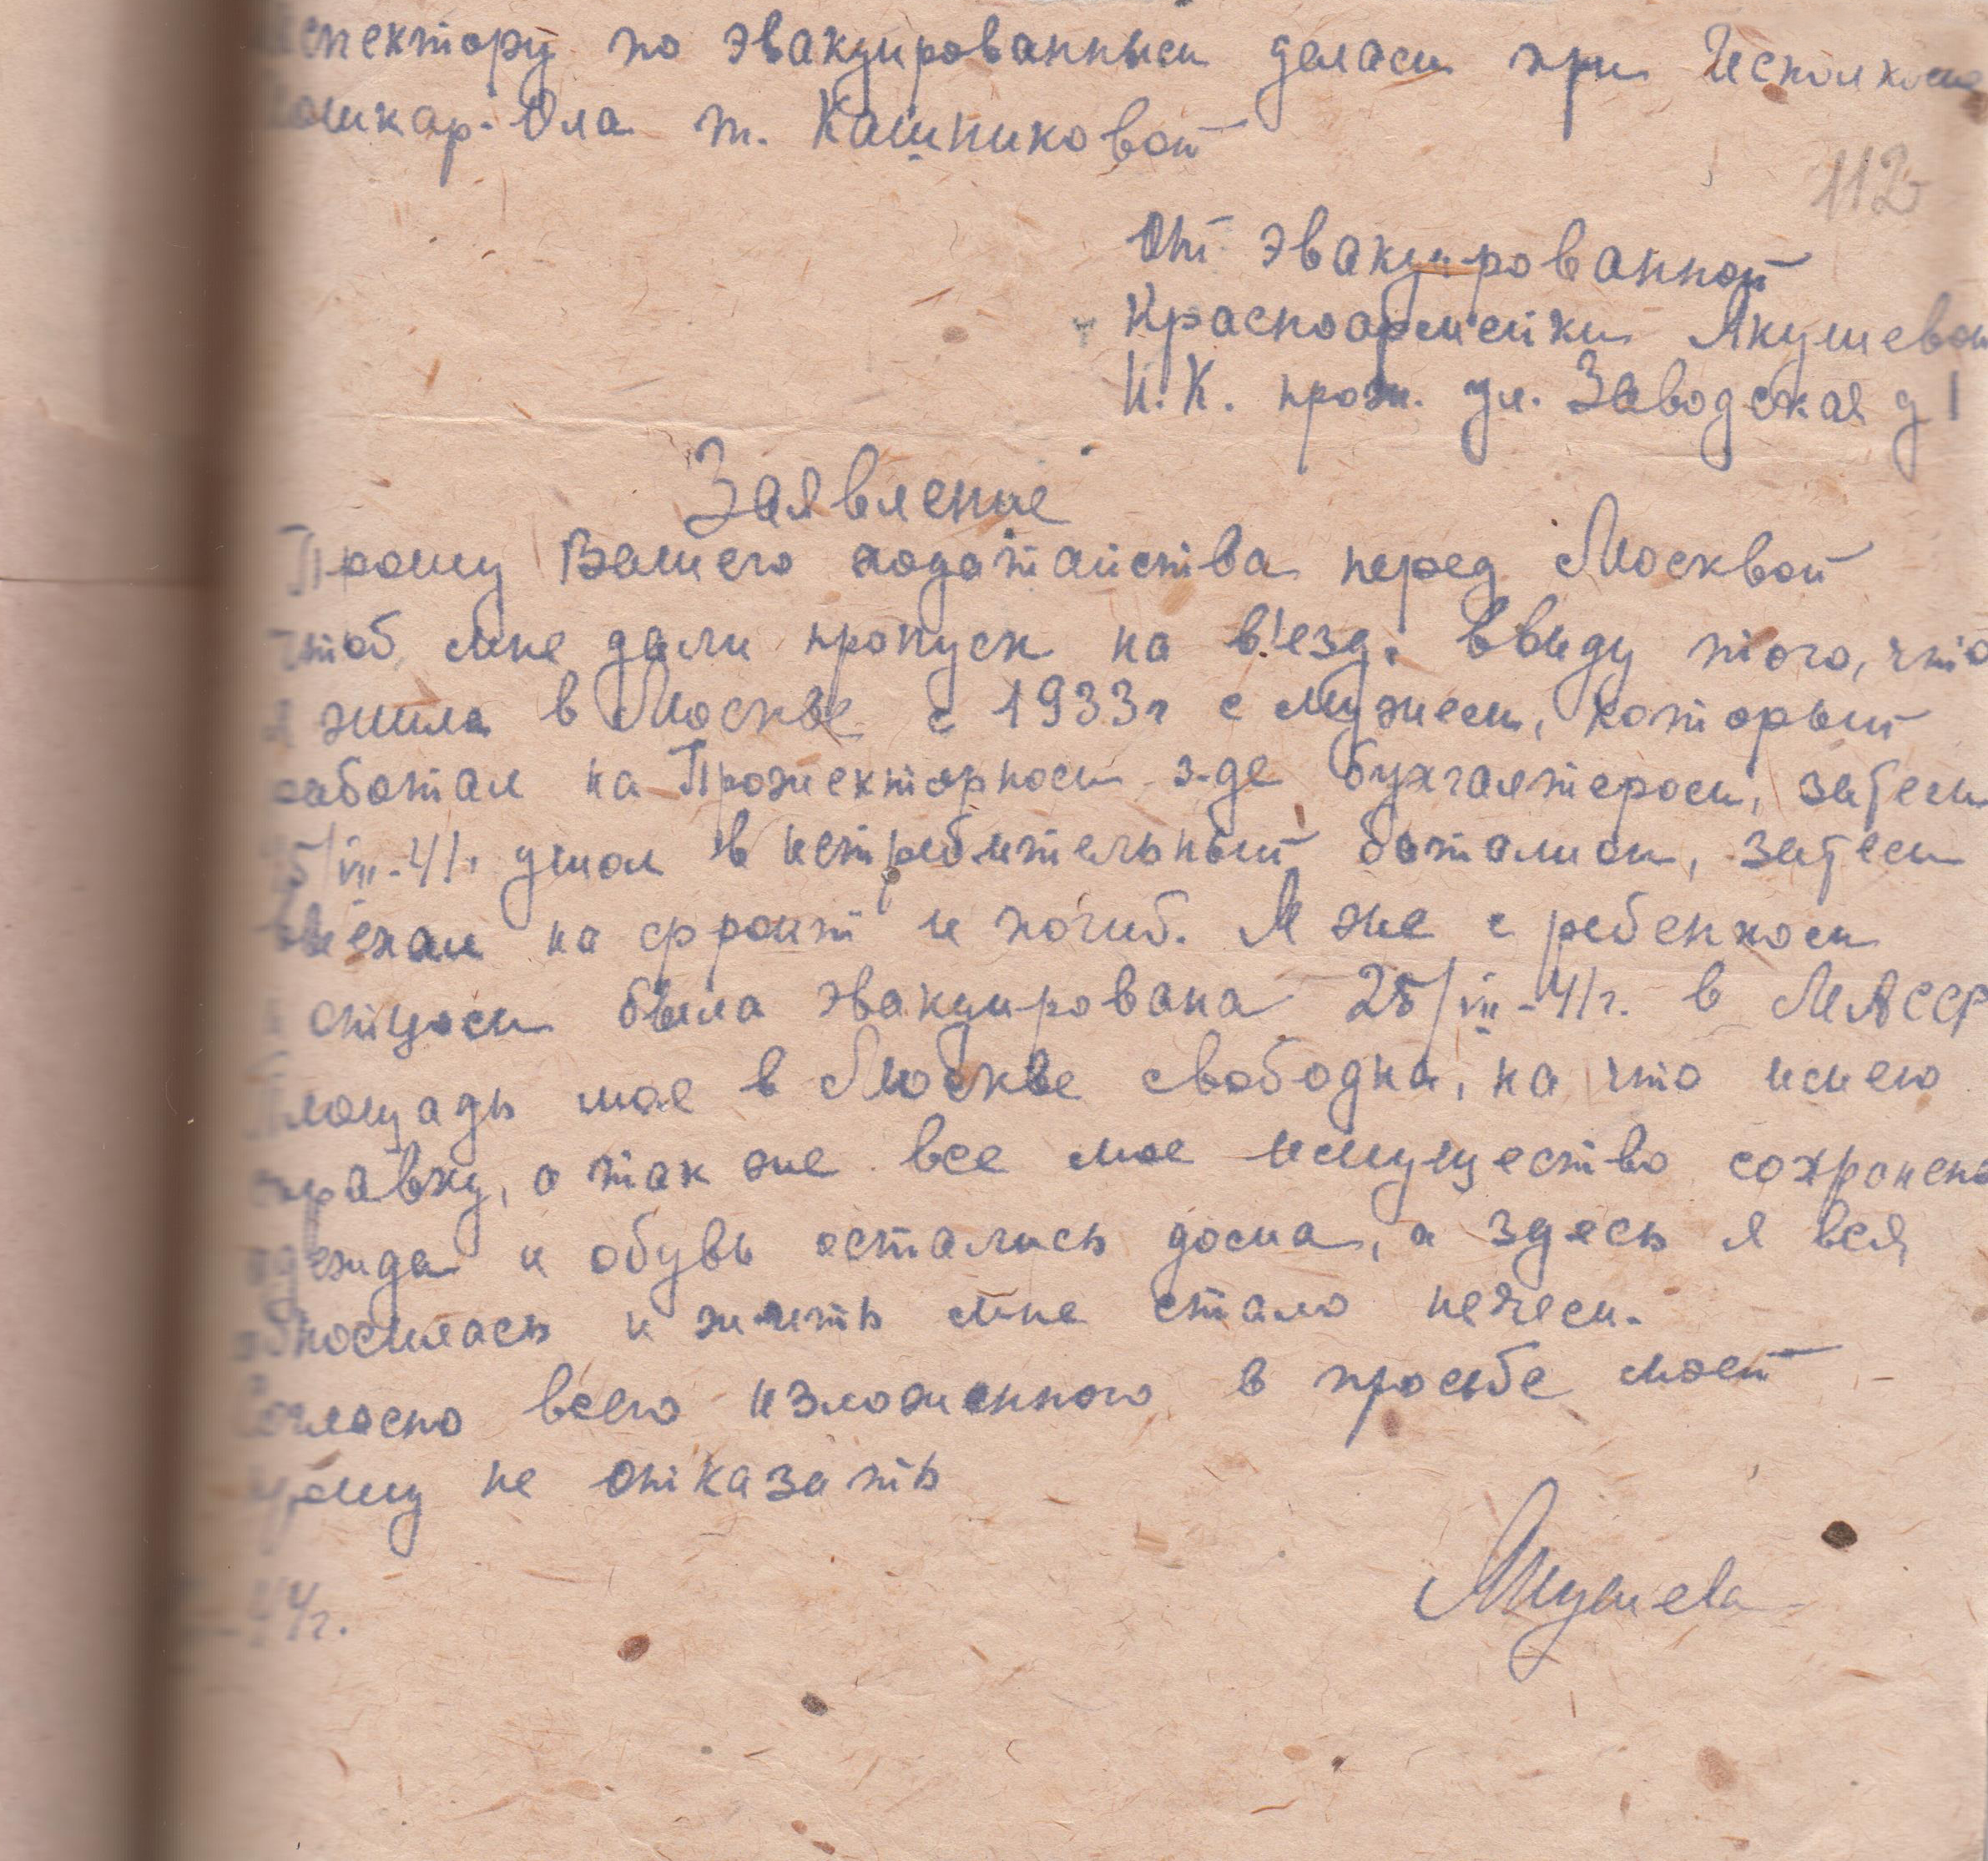 Инспектору по эвакуированным делам при Исполкоме
Йошкар-Ола т. Кашниковой
112
От эвакуированной
Красноармейки Якушевой
И.К. прож. ул. Заводская д 1
Заявление
Прошу Вашего ходатайства перед Москвой
чтоб мне дали пропуск на в!езд. Ввиду того, что
я жила в Москве с 1933г с мужем, который
работал на Прожекторном з-де бухгалтером, затем
5/VII-41г ушол в истребительный баталион, затем
выехал на фронт и погиб. Я же с ребенком
и отцом была эвакуирована 25/VII-41г. в МАССР
Площадь моя в Москве свободна, на что имею
справку, а так же все мое имущество сохранено
одежда и обувь остались дома, а здесь я вся
обносилась и жить мне стало нечем.
Согласно всего изложенного в просьбе моей
прошу не отказать
44г.
Якушева